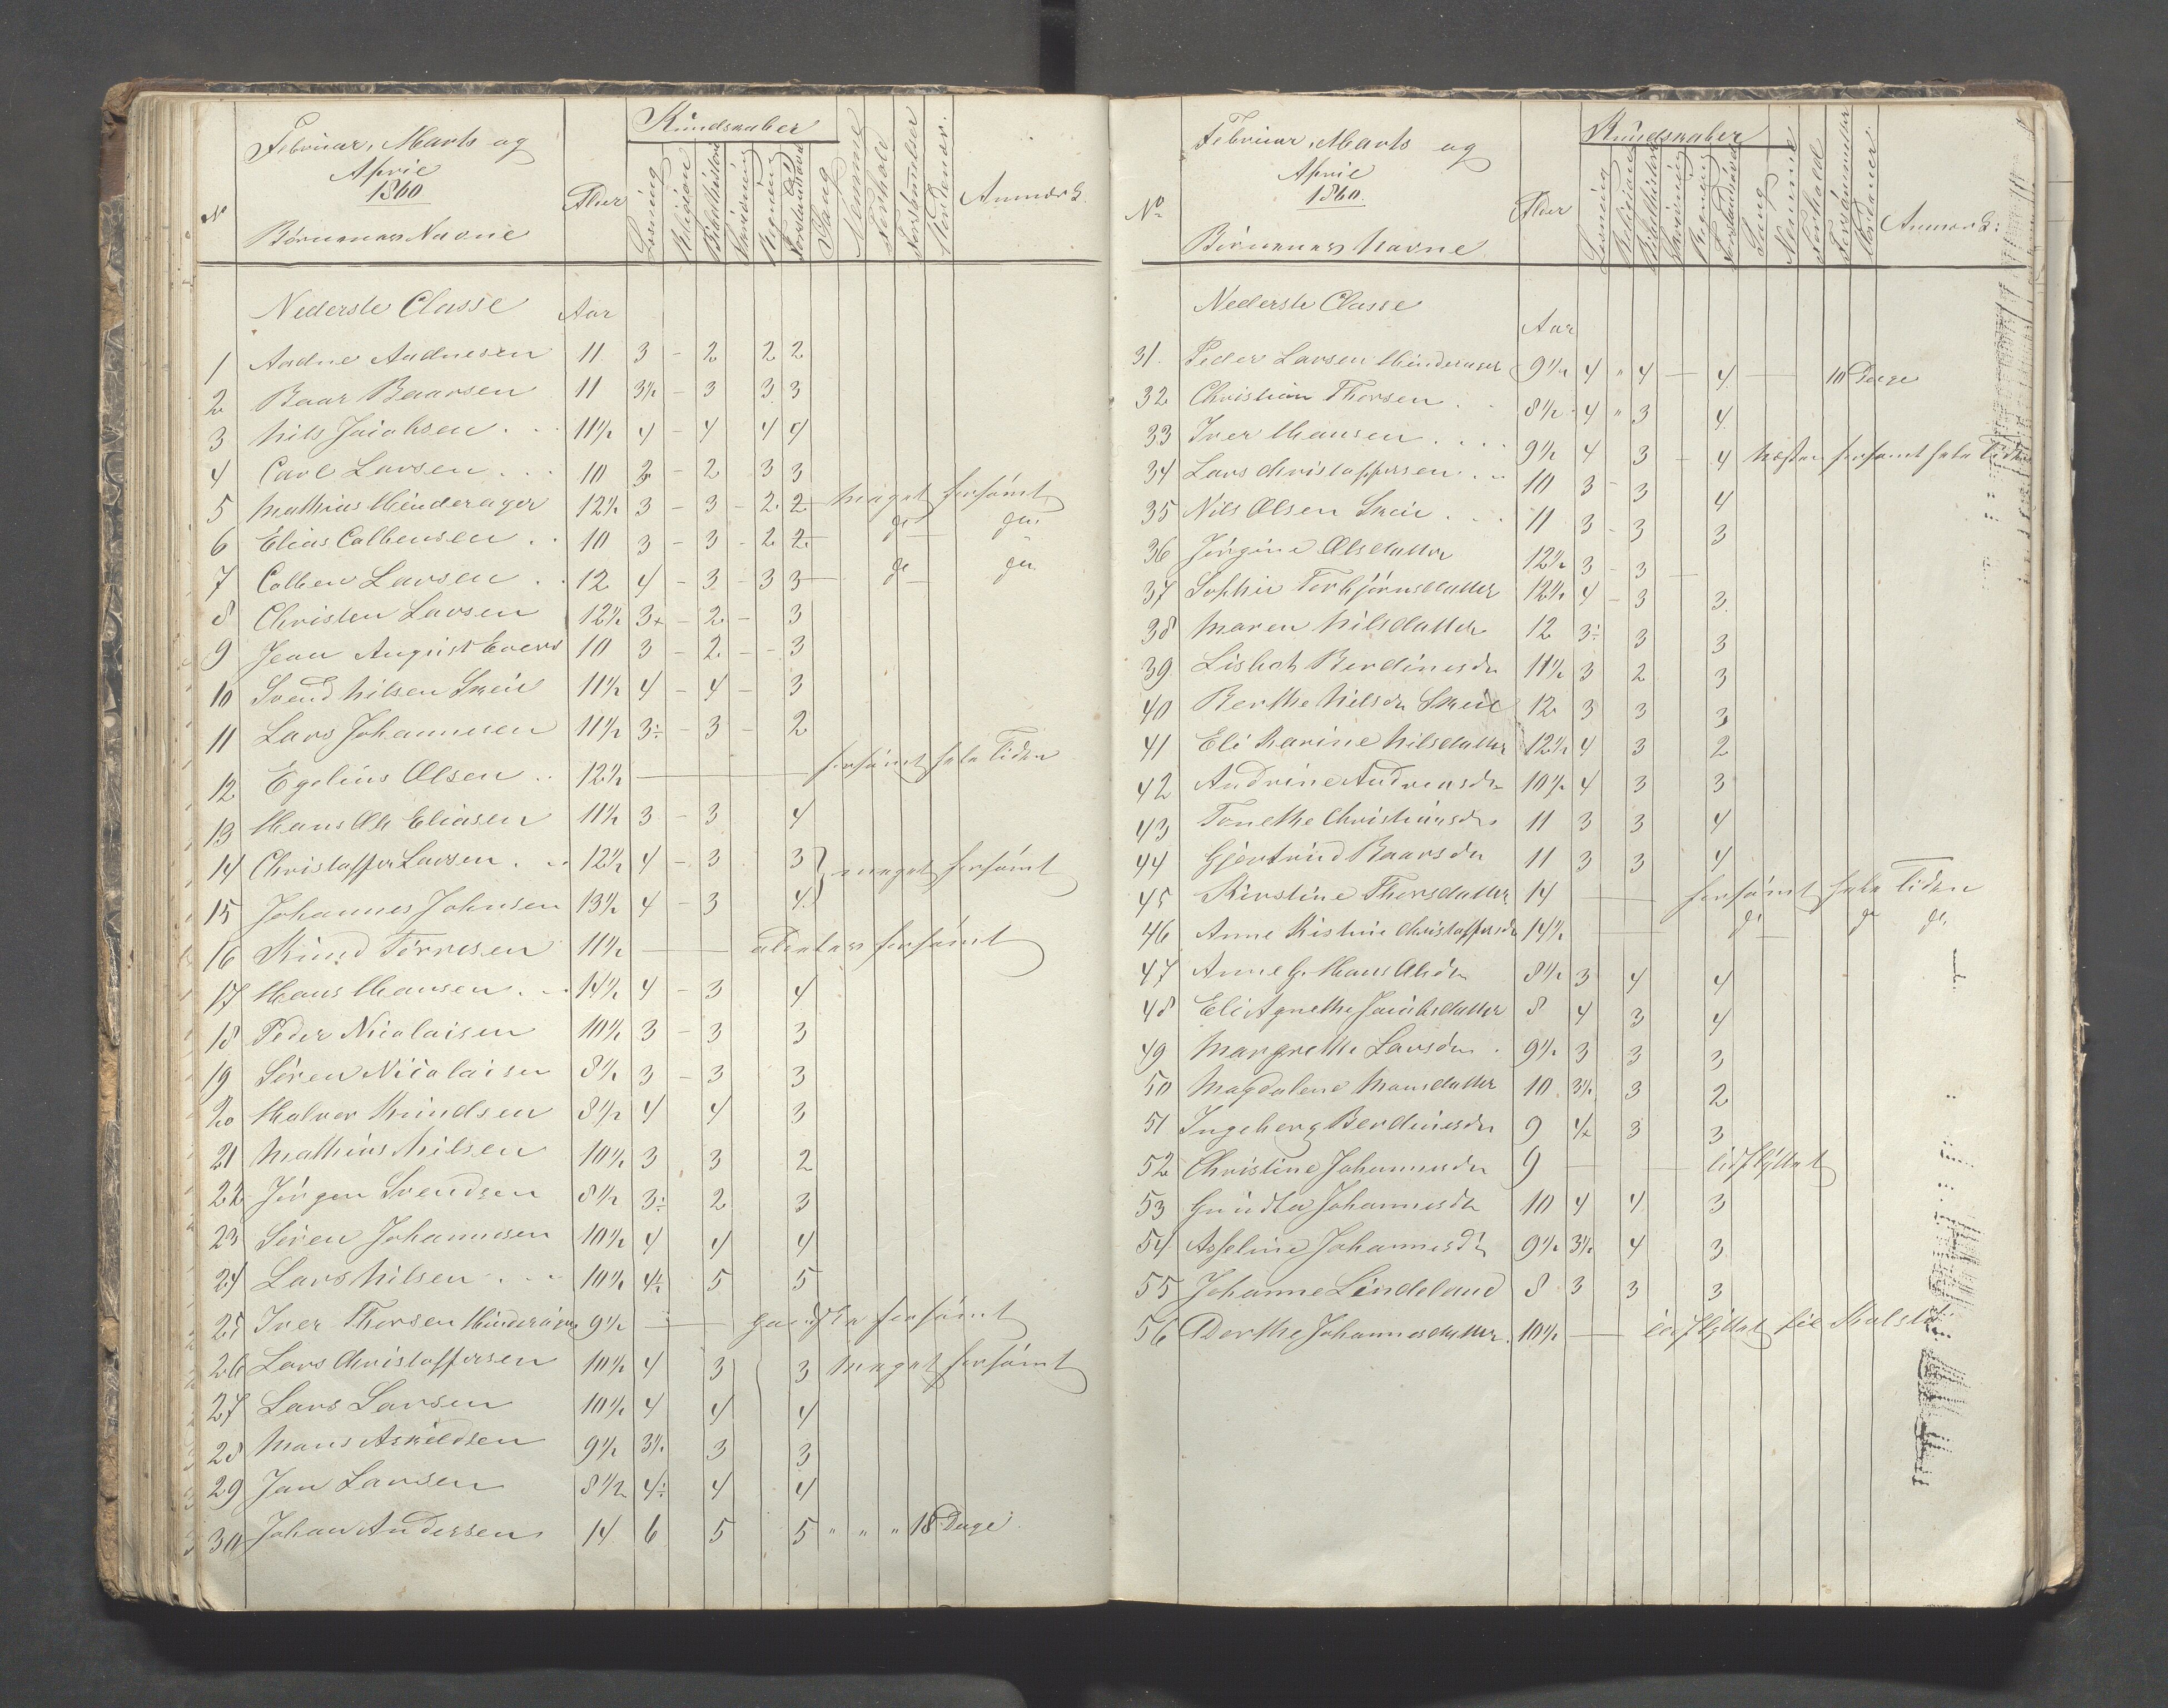 Februar, Marts og
April
1860
Kundskaber
No
Børnenes Navne
Alder
Læsning
Religion
Bibelhistorie
Skrivning
Regning
Forstandsøvelser
Sang
Nemme
Forhold
Forsømmelser
Anmærk.
Nederste Classe Aar
1 Aadne Aadnesen 11 3 - 2 2 2
2 Baar Baarsen 11 3½ - 3 3 3
3 Nils Jacobsen 11½ 4 - 4 4 4
4 Carl Larsen 10 3 - 2 3 3
5 Mathias Hinderager 12½ 3 - 3 - 2 2 meget forsømt
6 Elias Colbensen 10 3 - 3 - 2 2 do do
7 Colben Larsen 12 4 - 3 - 3 3 do do
8 Christen Larsen 12½ 3+ - 2 - 3
9 Jean August Evers 10 3 - 2 - - 3
10 Svend Nilsen Skeie 11½ 4 - 4 - 3
11 Lars Johannesen 11½ 3÷ - 3 - 2
12 Egelius Olsen 12½ forsømt hele Tiden
13 Hans Ole Eliasen 11½ 3 - 3 4
14 Christoffer Larsen 12½ 4 - 3 3 } meget forsømt
15 Johannes Johnsen 13½ 4 - 3 4
16 Knud Tørresen 11½ aldeles forsømt
17 Hans Hansen 14½ 4 - 3 4
18 Peder Nicolaisen 10½ 3 - 3 3
19 Søren Nicolaisen 8½ 3 - 3 3
20 Halvor Knudsen 8½ 4 4 3
21 Mathias Nilsen 10½ 3 3 2
22 Jørgen Svendsen 8½ 3÷ 2 3
23 Søren Johannesen 10½ 4 4 4
24 Lars Nilsen 10½ 4½ 5 5
25 Iver Thorsen Hinderager 9½ ganske forsømt
26 Lars Christoffersen 10½ 4 3 3 meget forsømt
27 Lars Larsen 10½ 4 4 4
28 Mons Askildsen 9½ 3½ 3 3
29 Jan Larsen 8½ 4÷ 4 4
30 Johan Andersen 14 6 5 5 " " " 18 Dage
Februar, Marts og
April
1860.
Kundskaber
No
Børnenes Navne
Alder
Læsning
Religion
Bibelhistorie
Skrivning
Regning
Forstandsøvelser
Sang
Nemme
Forhold
Forsømmelser
Anmærk:
Nederste Classe
Aar
31. Peder Larsen Hinderager 9½ 4 " 4 4 10 Dage
32 Christian Thorsen 8½ 4 " 3 4
33 Iver Hansen 9½ 4 3 - 4 næsten forsømt hele Tiden
34 Lars Christoffersen 10 3 - 3 4
35 Nils Olsen Skeie 11 3 - 3 3
36 Jørgine Olsdatter 12½ 3 - 3
37 Sophie Torbjørnsdatter 12½ 4 - 3 3
38 Maren Nilsdatter 12 3÷ 3 3
39 Lisbet Berdinesdr 11½ 3 2 3
40 Berthe Nilsdr Skeie 12 3 3 3
41 Eli Karine Nilsdatter 12½ 4 3 2
42 Andrine Andreasdr 10½ 4 3 3
43 Tonethe Christiansdr 11 3 3 4
44 Gjertrud Baarsdr 11 3 3 4
45 Kirstine Thorsdatter 14 forsømt hele Tiden
46 Anne Kistine Christoffersdr 14½ do do do
47 Anne G. Hans Olsdr 8½ 3 4 4
48 Eli Agnethe Jacobsdatter 8 4 3 4
49 Margrethe Larsdr 9½ 3 3 3
50 Magdalene Monsdatter 10 3½ 3 2
51 Ingeborg Berdinesdr 9 4+ 3 3
52 Christine Johannesdr 9 udflyttet
53 Gundla Johannesdr 10 4 4 3
54 Asseline Johannesdr 9½ 3½ 4 3
55 Johanne Lindeland 8 3 3 3
56 Dorthe Johannesdatter 10½ udflyttet til